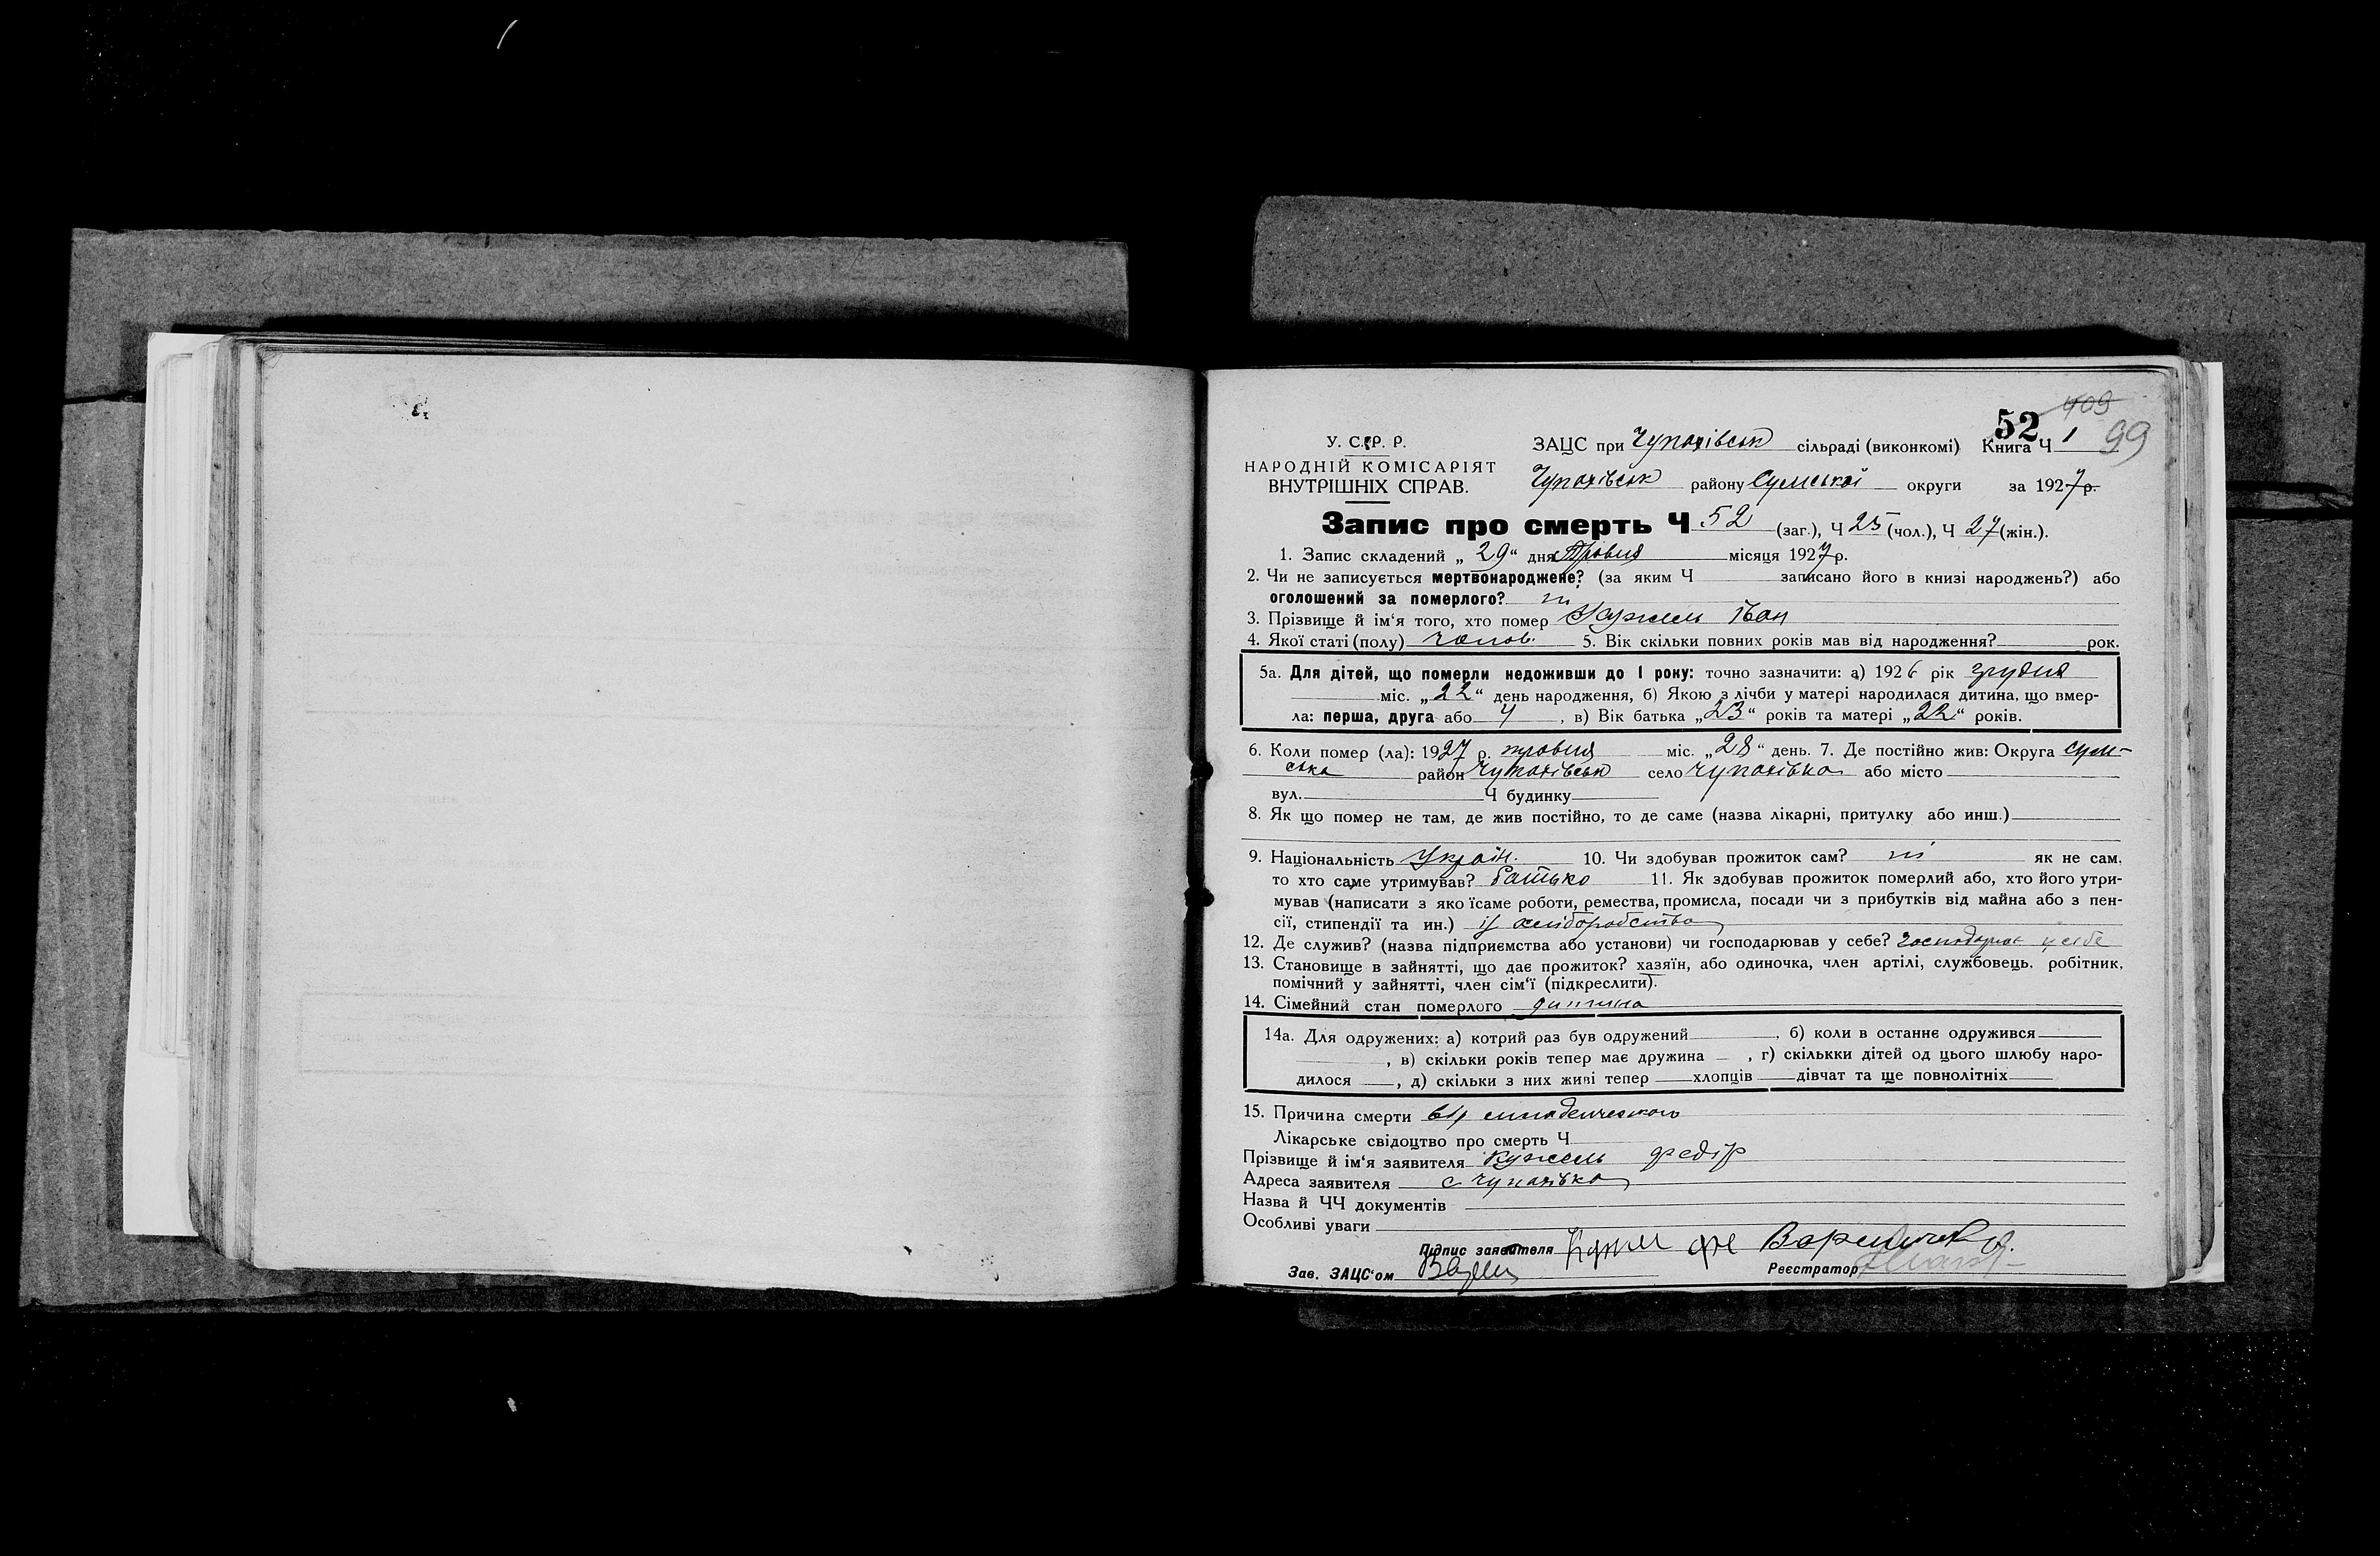 409
52
99
У. С. Р. Р.
НАРОДНІЙ КОМІСАРІЯТ
ВНУТРІШНІХ СПРАВ.
ЗАЦС при Чупахівськ сільраді (виконкомі) Книга Ч 1
Чупахівськ району Сумської округи за 1927 р.
Запис про смерть Ч 52 (заг.), Ч 25 (чол.), Ч 27 (жін.).
1. Запис складений „ 29 “ дня Травня місяця 1927 р.
2. Чи не записується мертвонароджене? (за яким Ч записано його в книзі народжень?) або
оголошений за померлого? ні
3. Прізвище й ім‘я того, хто помер Кужель Іван
4. Якої статі (полу) чолов. 5. Вік скільки повних років мав від народження? рок.
5а. Для дітей, що померли недоживши до 1 року: точно зазначити: а) 1926 рік грудня
міс. „ 22 “ день народження, б) Якою з лічби у матері народилася дитина, що вмер-
ла: перша, друга або , в) Вік батька „ 23 “ років та матері „ 22 “ років.
6. Коли помер (ла): 1927 р. травня міс. „ 28 “ день. 7. Де постійно жив: Округа Сум-
ська район Чупахівськ село Чупахівка або місто
вул. Ч будинку
8. Як що помер не там, де жив постійно, то де саме (назва лікарні, притулку або инш.)
9. Національність Україн. 10. Чи здобував прожиток сам? ні як не сам,
то хто саме утримував? батько 11. Як здобував прожиток померлий або, хто його утри-
мував (написати з яко їсаме роботи, ремества, промисла, посади чи з прибутків від майна або з пен-
сії, стипендії та ин.) із хліборобства
12. Де служив? (назва підприємства або установи) чи господарював у себе? у себе
13. Становище в зайнятті, що дає прожиток? хазяїн, або одиночка, член артілі, службовець, робітник,
помічний у зайнятті, член сім‘ї (підкреслити).
14. Сімейний стан померлого дитина
14а. Для одружених: а) котрий раз був одружений , б) коли в останнє одружився
, в) скільки років тепер має дружина — , г) скількки дітей од цього шлюбу наро-
дилося , д) скільки з них живі тепер хлопців дівчат та ще повнолітніх
15. Причина смерти від младенческого
Лікарське свідоцтво про смерть Ч
Прізвище й ім‘я заявителя Кужель Федір
Адреса заявителя с Чупахівка
Назва й ЧЧ документів
Особливі уваги
Підпис заявителя
Зав. ЗАЦС‘ом Реєстратор